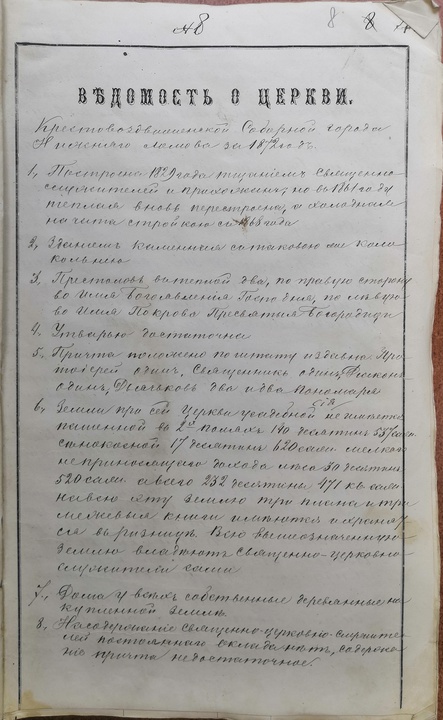 №8 8 8
ВѢДОМОСТЬ О ЦЕРКВИ.
Крестовоздвиженской Соборной города
Нижняго Ломова за 1872 годъ.
1, Построена 1829 года тщаніемъ Священно-
служителей и прихожанъ; но въ 1861 году
теплая вновь перестроена, а холодная
начата стройкою съ 1868 года
2, Зданіемъ Каменная съ таковою же коло
кольнею
3, Престоловъ въ теплой два, по правую сторону
во Имя Богоявленія Господня, по лѣвую
во Имя Покрова Пресвятыя Богородицы
4. Утварью достаточна
5. Причта положено по штату издавна Про
тоіерей одинъ, Священникъ одинъ, Діаконъ
одинъ, Дьячковъ два и два пономаря
6, Земли при сей Церкви усадебной не имѣется
пашенной во 2хъ поляхъ 190 десятинъ 537 саж.
сѣнокосной 17 десятинъ 620 саж. мелкаго
неприносящаго дохода лѣса 30 десятинъ
520 саж. а всего 232 десятины 471 кв. саж.
на всю эту землю три плана и три
межевыя книги имѣются и хранят
ся въ ризницѣ. Всею вышеозначенную
землею владѣютъ Священно-церковно-
служители сами
7, Дома у всѣхъ собственные деревянные на
купленной землѣ.
8, На содержаніе Священно-церковно-служите
лей постояннаго оклада нѣтъ, содержа
ніе причта недостаточное.